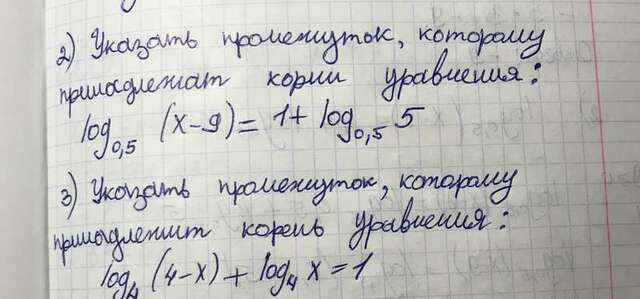 2) Указать промежуток, которому
принадлежат корни уравнения:
log₀,₅ (x-9) = 1 + log₀,₅ 5
3) Указать промежуток, которому
принадлежит корень уравнения:
log₄ (4-x) + log₄ x = 1